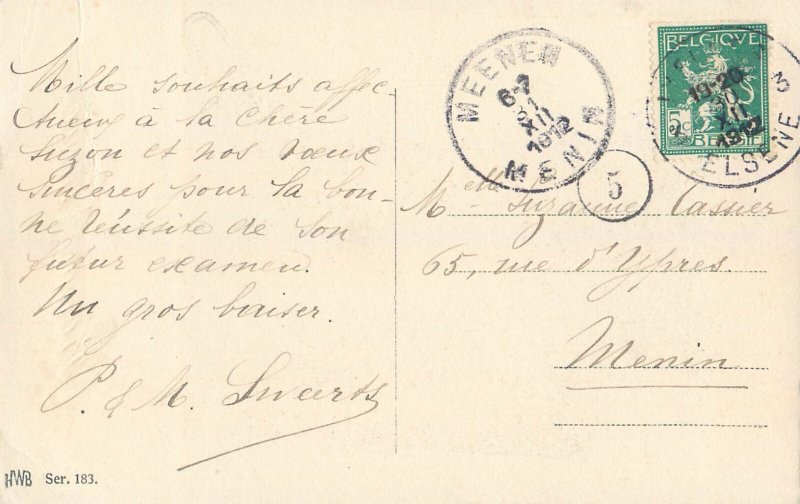 Mille souhaits affec-
tueux à la chère
Suzon et nos voeux
sincères pour la bon-
ne réussite de son
futur examen.
Un gros baiser.
P. & M. Swaerts
HWB Ser. 183.
MEENEN
6-7
31
XII
1912
MENIN
BELGIQUE
5c
BELGIË
3
19-20
30
XII
1912
ELSENE
5
Melle Suzanne Cassier
65, rue d'Ypres.
Menin.